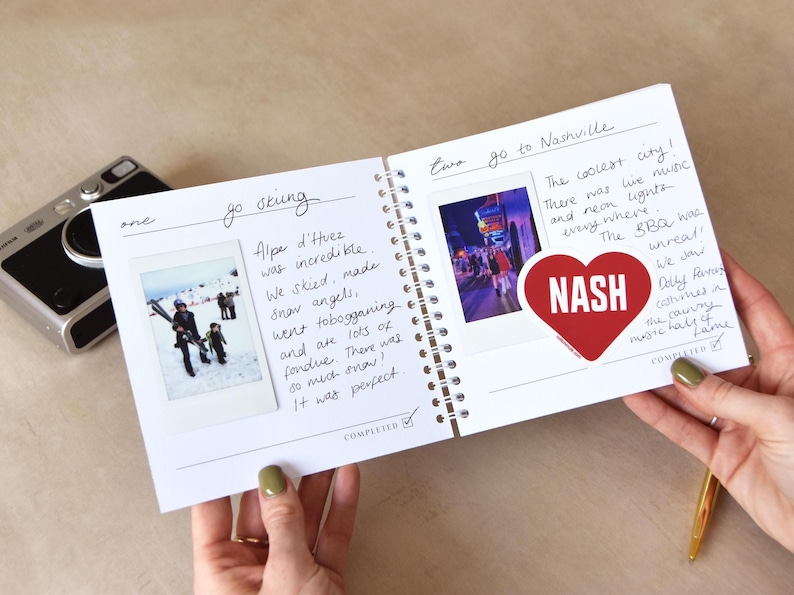 FUJIFILM
one go skiing
Alpe d'Huez
was incredible.
We skied, made
snow angels,
went tobogganing
and ate lots of
fondue. There was
so much snow!
It was perfect.
COMPLETED
two go to Nashville
The coolest city!
There was live music
and neon lights
everywhere.
The BBQ was
unreal!
We saw
Dolly Partons
costumes in
the country
music hall of
fame
NASH
COMPLETED